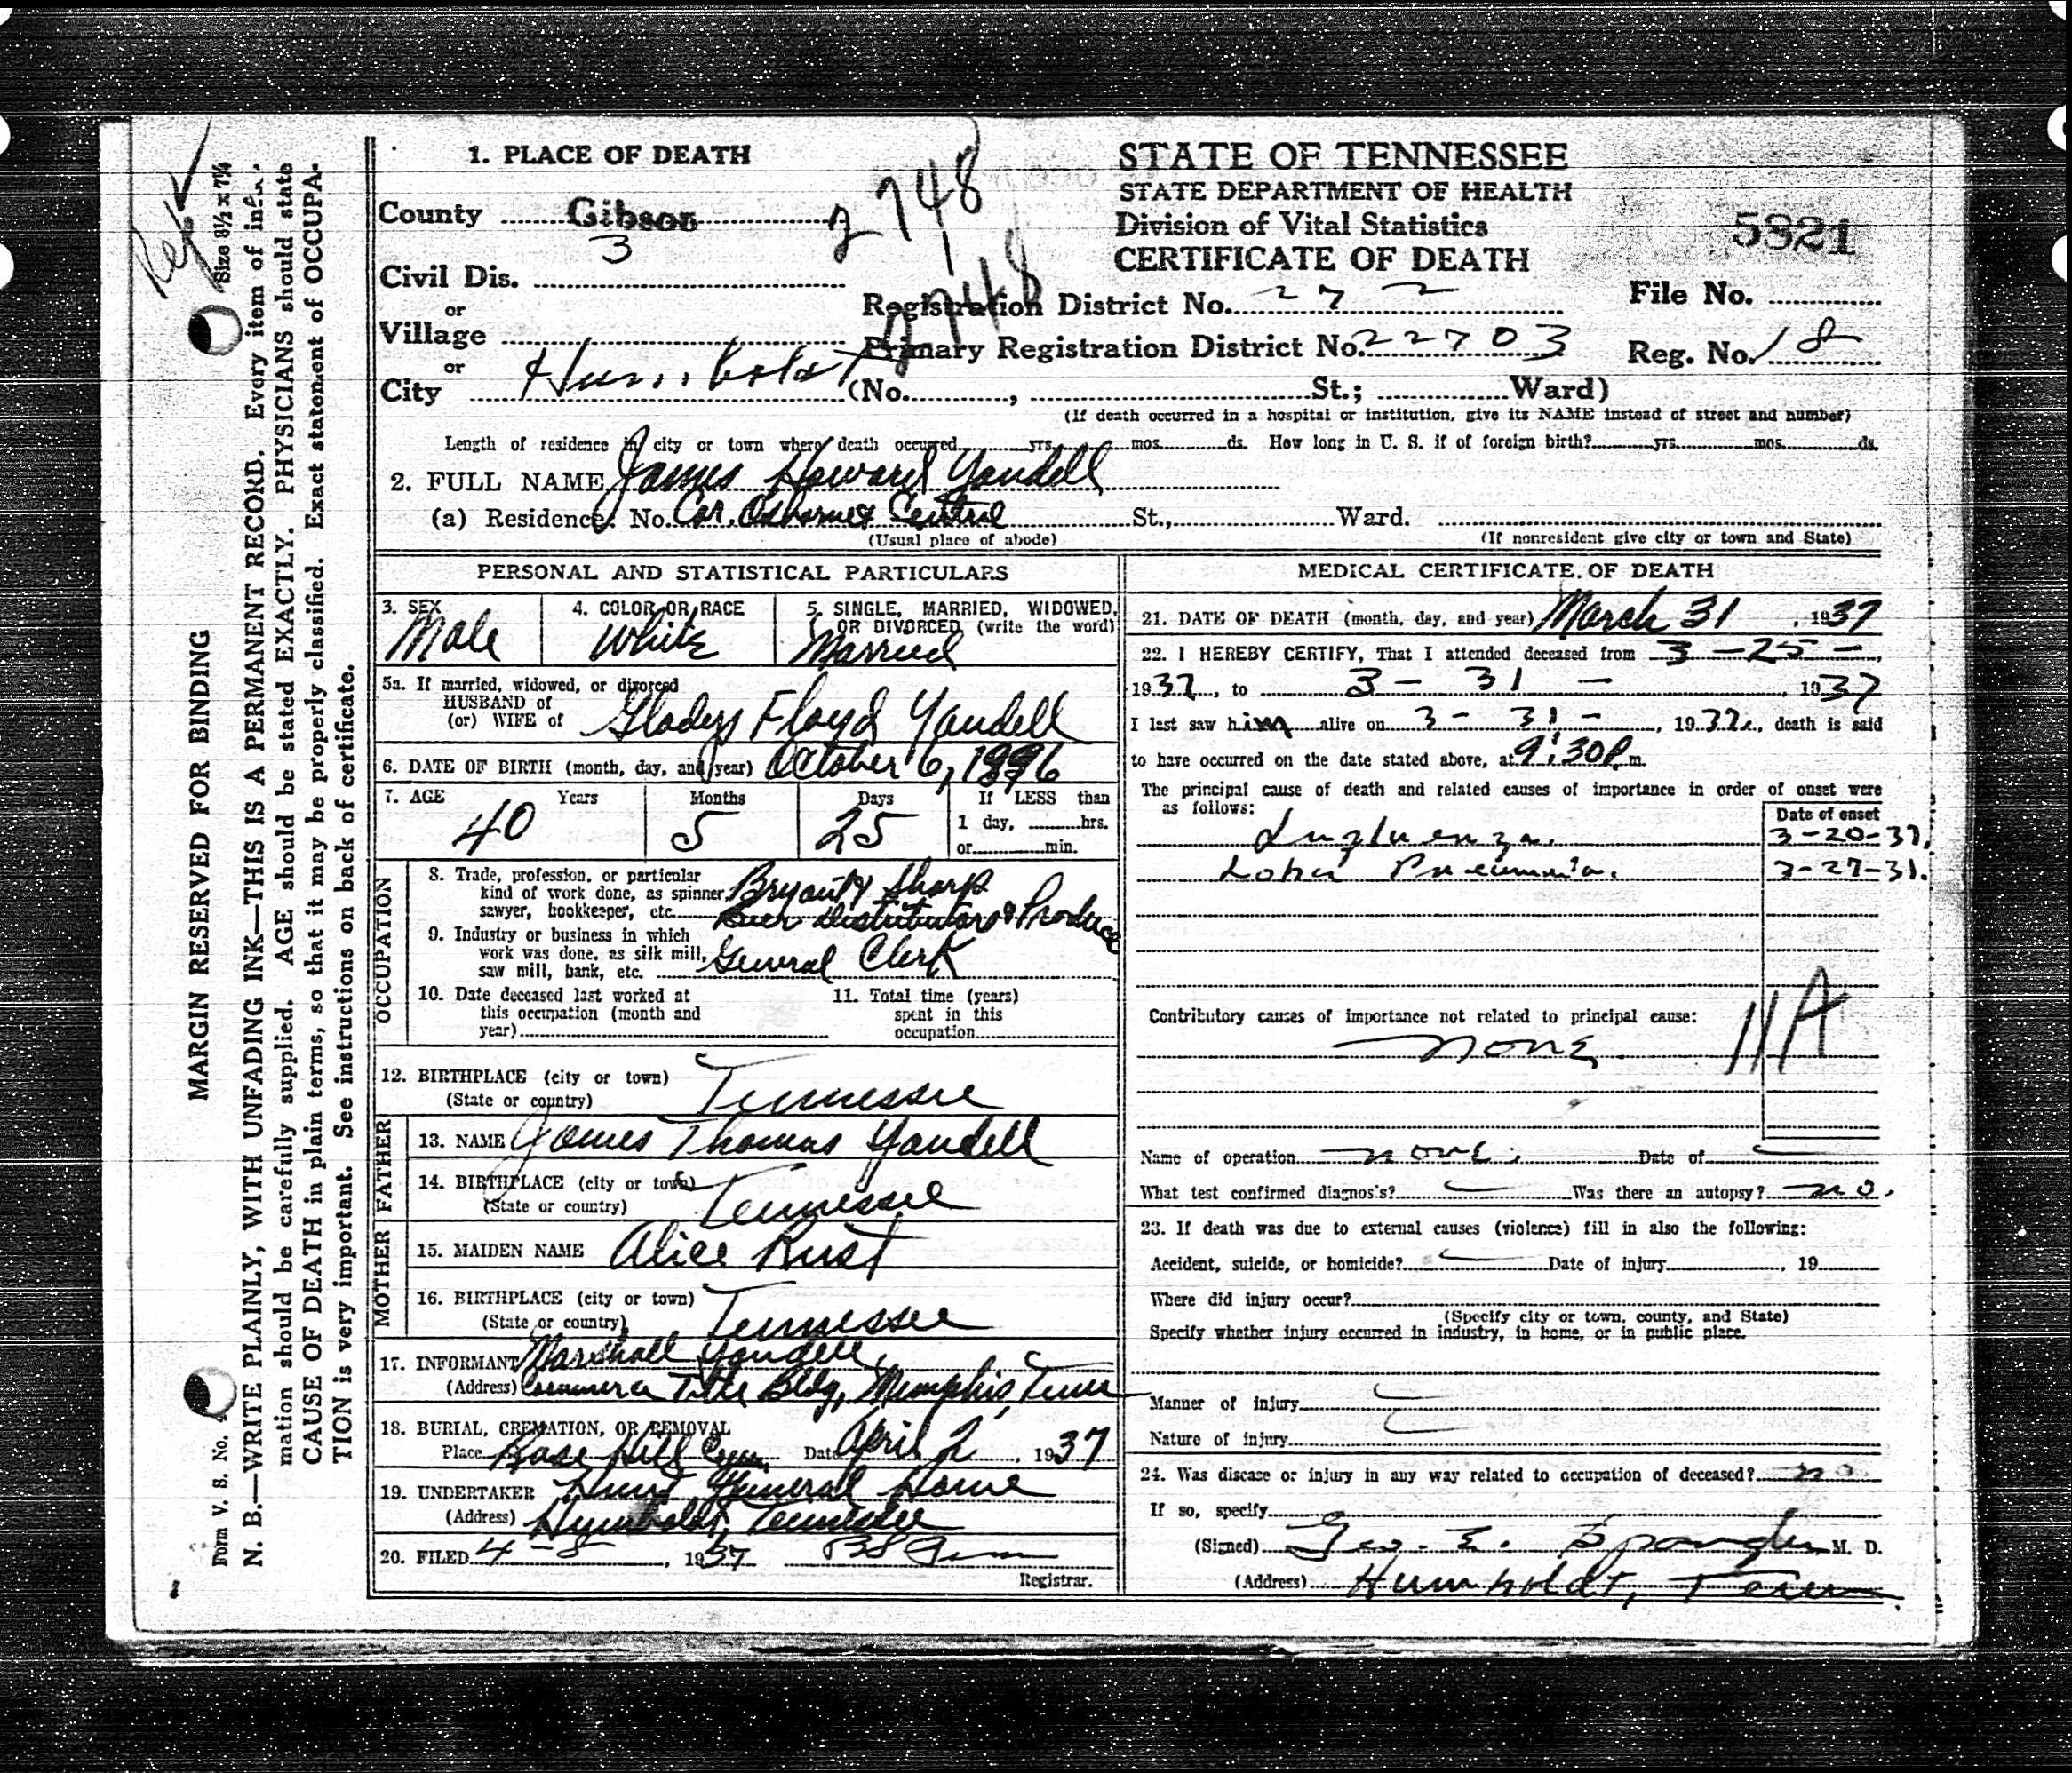 Ref
Size 8½ x 7¼
MARGIN RESERVED FOR BINDING
N. B.—WRITE PLAINLY, WITH UNFADING INK—THIS IS A PERMANENT RECORD. Every item of infor-
mation should be carefully supplied. AGE should be stated EXACTLY. PHYSICIANS should state
CAUSE OF DEATH in plain terms, so that it may be properly classified. Exact statement of OCCUPA-
TION is very important. See instructions on back of certificate.
Form V. S. No.
1. PLACE OF DEATH
County Gibson
Civil Dis. 3
or
Village
or
City Humboldt (No. , St.; Ward)
2748
2748
STATE OF TENNESSEE
STATE DEPARTMENT OF HEALTH
Division of Vital Statistics
CERTIFICATE OF DEATH
5821
Registration District No. 272
File No.
Primary Registration District No. 22703
Reg. No. 18
(If death occurred in a hospital or institution, give its NAME instead of street and number)
Length of residence in city or town where death occurred yrs. mos. ds. How long in U. S. if of foreign birth? yrs. mos. ds.
2. FULL NAME James Howard Yandell
(a) Residence: No. Cor. Osborne & Central St., Ward.
(Usual place of abode) (If nonresident give city or town and State)
PERSONAL AND STATISTICAL PARTICULARS
3. SEX Male
4. COLOR OR RACE White
5. SINGLE, MARRIED, WIDOWED, OR DIVORCED (write the word) Married
5a. If married, widowed, or divorced
HUSBAND of
(or) WIFE of Gladys Floyd Yandell
6. DATE OF BIRTH (month, day, and year) October 6, 1896
7. AGE Years 40 Months 5 Days 25 If LESS than
1 day, hrs.
or min.
OCCUPATION
8. Trade, profession, or particular
kind of work done, as spinner,
sawyer, bookkeeper, etc. Bryant & Sharp
Beer Distributors & Produce
9. Industry or business in which
work was done, as silk mill,
saw mill, bank, etc. General Clerk
10. Date deceased last worked at
this occupation (month and
year)
11. Total time (years)
spent in this
occupation
12. BIRTHPLACE (city or town)
(State or country) Tennessee
FATHER
13. NAME James Thomas Yandell
14. BIRTHPLACE (city or town)
(State or country) Tennessee
MOTHER
15. MAIDEN NAME Alice Rust
16. BIRTHPLACE (city or town)
(State or country) Tennessee
17. INFORMANT Marshall Yandell
(Address) Commerce Title Bldg, Memphis, Tenn
18. BURIAL, CREMATION, OR REMOVAL
Place Rose Hill Cem. Date April 2, 1937
19. UNDERTAKER Hunt Funeral Home
(Address) Humboldt, Tennessee
20. FILED 4-8, 1937
Registrar.
MEDICAL CERTIFICATE OF DEATH
21. DATE OF DEATH (month, day, and year) March 31, 1937
22. I HEREBY CERTIFY, That I attended deceased from 3-25-,
1937, to 3-31-, 1937
I last saw him alive on 3-31-, 1937, death is said
to have occurred on the date stated above, at 9:30P.m.
The principal cause of death and related causes of importance in order of onset were
as follows:
Date of onset
Influenza. 3-20-37.
Lobar Pneumonia. 3-27-37.
Contributory causes of importance not related to principal cause:
none
11A
Name of operation none. Date of
What test confirmed diagnosis? Was there an autopsy? no.
23. If death was due to external causes (violence) fill in also the following:
Accident, suicide, or homicide? Date of injury , 19
Where did injury occur?
(Specify city or town, county, and State)
Specify whether injury occurred in industry, in home, or in public place.
Manner of injury
Nature of injury
24. Was disease or injury in any way related to occupation of deceased? no
If so, specify
(Signed) Geo. E. Spangler M. D.
(Address) Humboldt, Tenn.